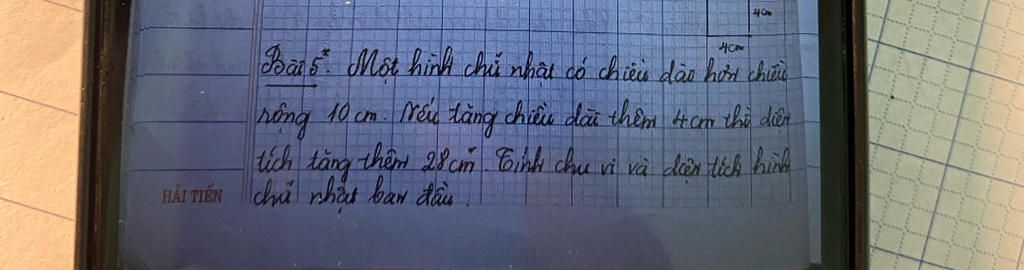 4cm
4cm
Bài 5*. Một hình chữ nhật có chiều dài hơn chiều
rộng 10 cm. Nếu tăng chiều dài thêm 4cm thì diện
tích tăng thêm 28cm². Tính chu vi và diện tích hình
chữ nhật ban đầu.
HẢI TIẾN